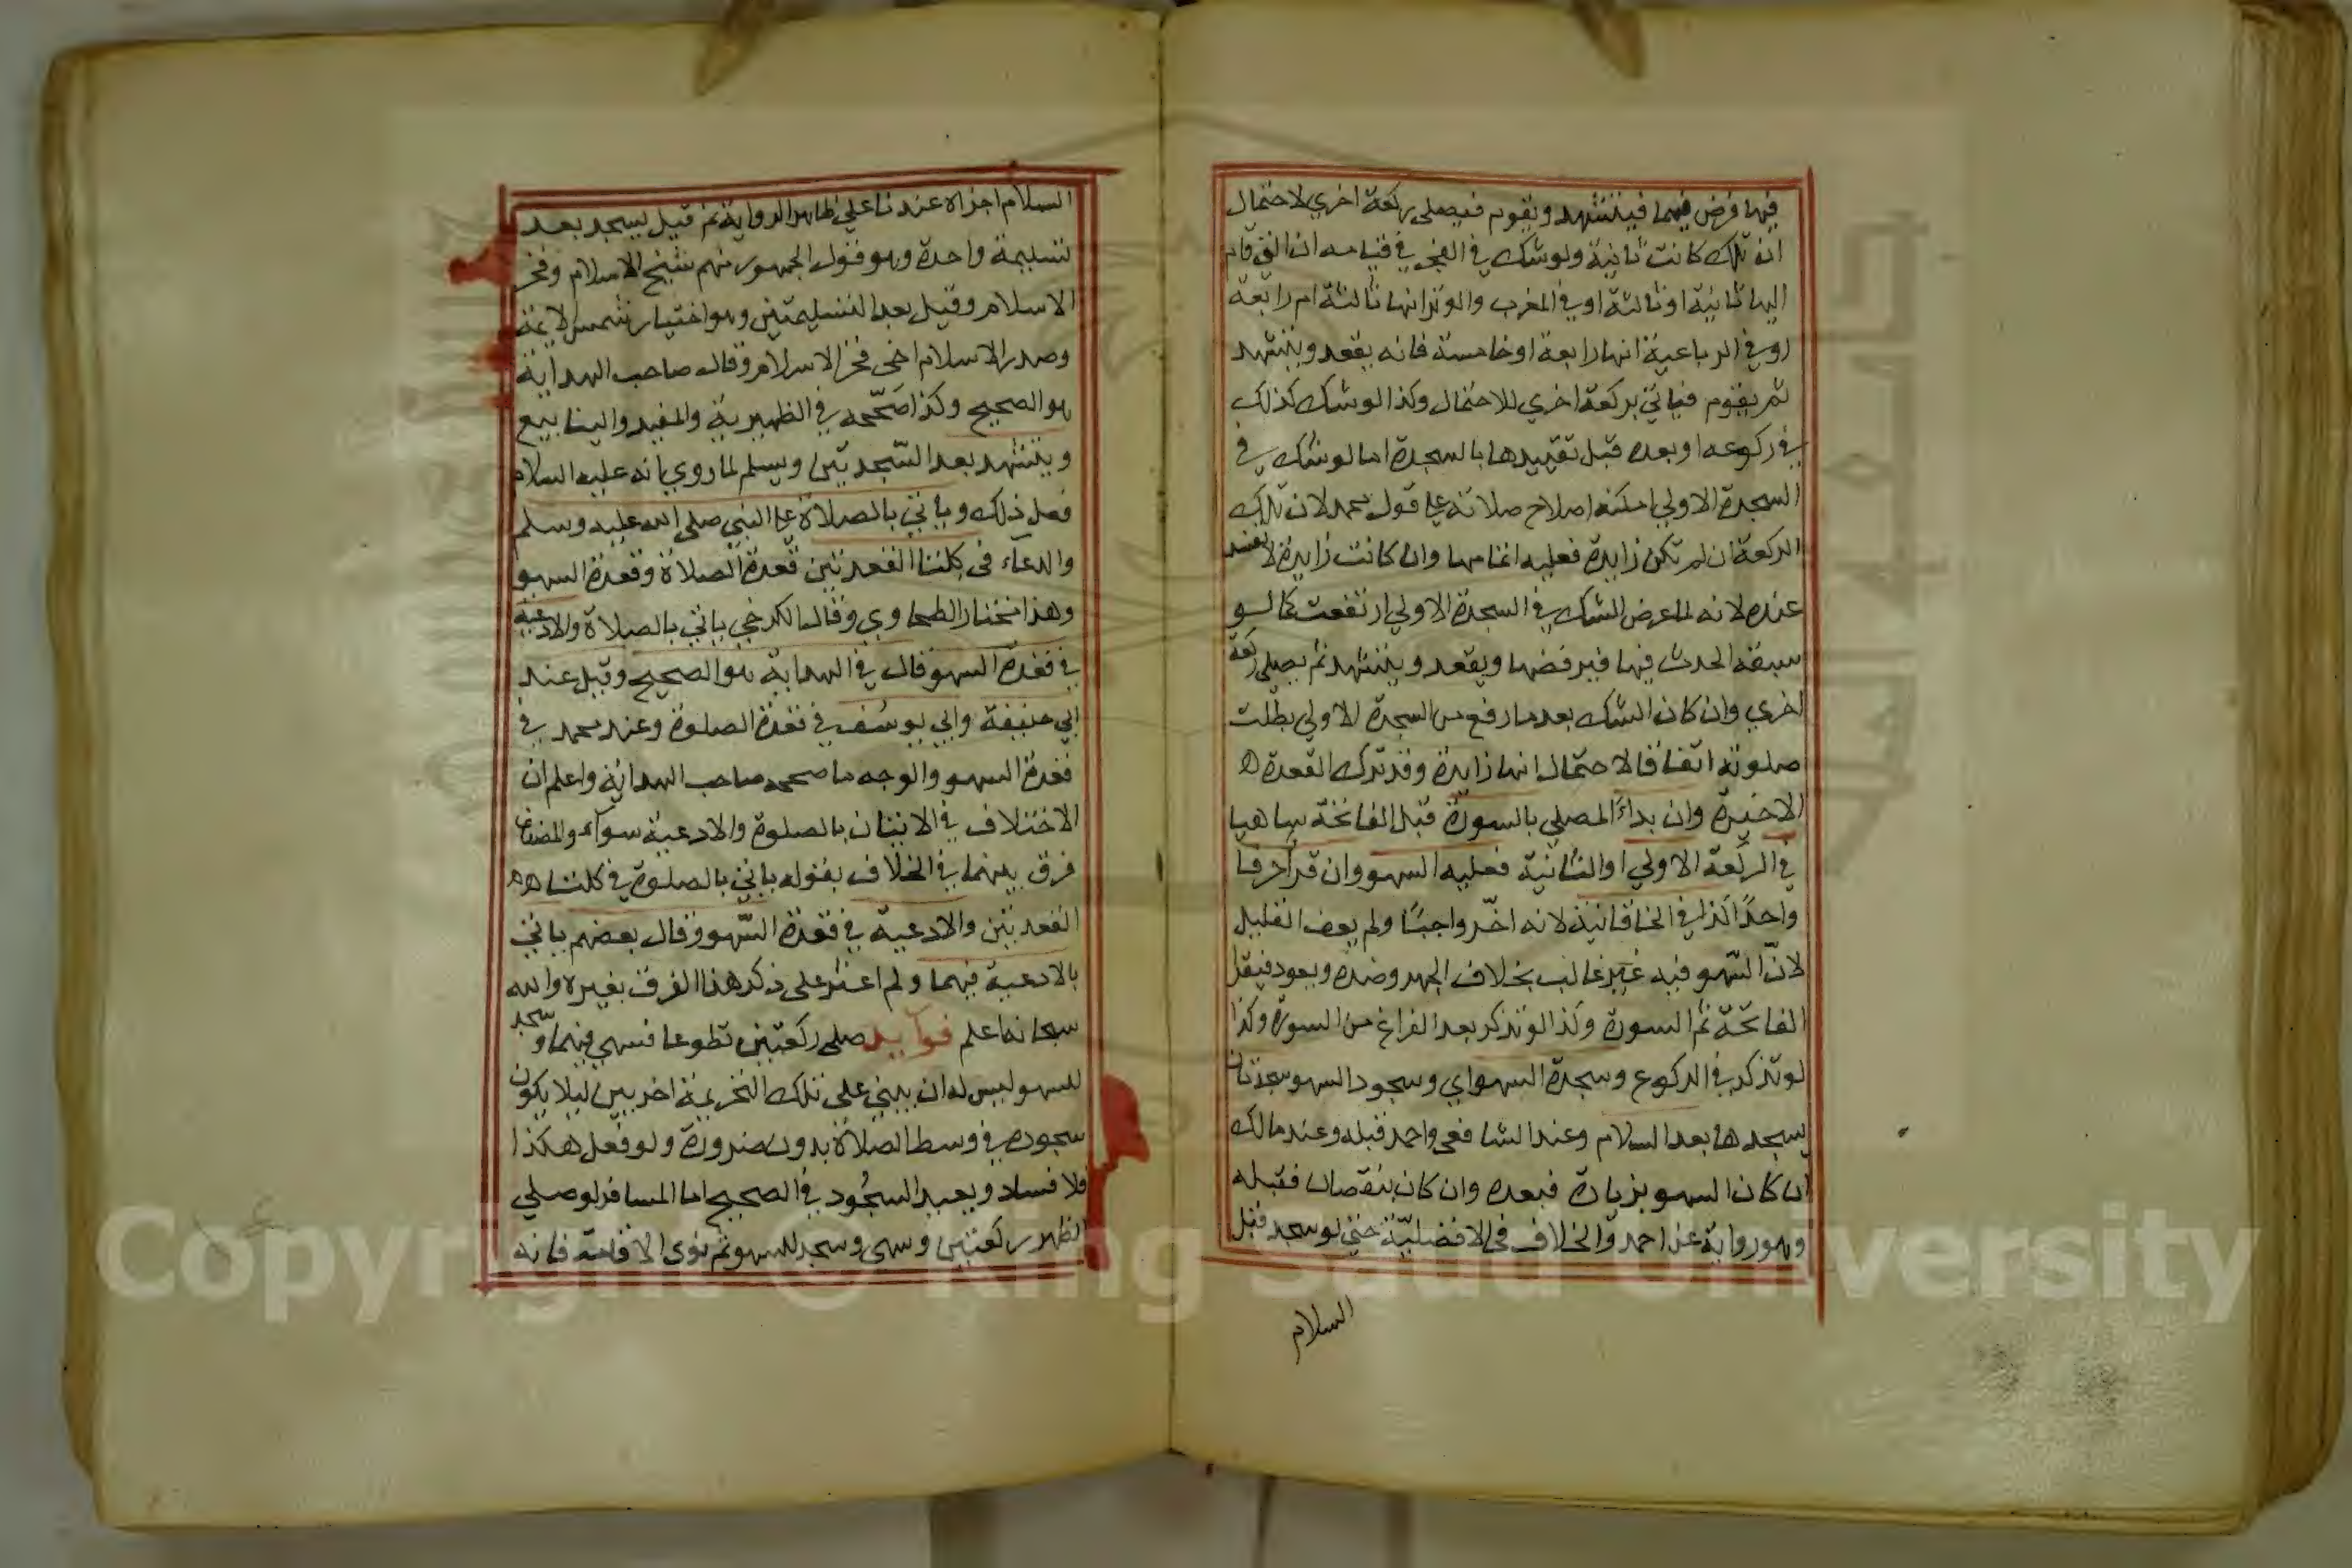 فيها فرض فيهما فيتشهد ويقوم فيصلي ركعة اخري لاحتمال
ان تلك كانت ثانية ولو شك في الفجر في قيامه ان التي قام
اليها ثانية او ثالثة او في المغرب والوتر انها ثالثة ام رابعة
او في الرباعية انها رابعة او خامسة فانه يقعد ويتشهد
ثم يقوم فياتي بركعة اخري للاحتمال وكذا لو شك كذلك
في ركوعه او بعده قبل تقييدها بالسجدة اما لو شك في
السجدة الاولي امكنه اصلاح صلاته علي قول محمد لان تلك
الركعة ان لم تكن زايدة فعليه اتمامها وان كانت زايدة لا تفسد
عنده لانه لما عرض الشك في السجدة الاولي ارتفعت كما لو
سبقه الحدث فيها فيرفضها ويقعد ويتشهد ثم يصلي ركعة
اخري وان كان الشك بعد ما رفع من السجدة الاولي بطلت
صلوته اتفاقا لاحتمال انها زايدة وقد ترك القعدة ه
الاخيرة وان بداء المصلي بالسورة قبل الفاتحة ساهيا
في الركعة الاولي او الثانية فعليه السهو وان قرأ حرفا
واحدًا كذا في الخاقانية لانه اخّر واجبًا ولم يعف القليل
لانّ السّهو فيه غير غالب بخلاف الجهر وضده ويعود فيقرا
الفاتحة ثم السورة وكذا لو تذكر بعد الفراغ من السورة وكذا
لو تذكر في الركوع وسجدة السهو اي وسجود السهو سجدتان
يسجدها بعد السلام وعند الشافعي واحمد قبله وعند مالك
ان كان السهو بزيادة فبعده وان كان بنقصان فقبله
وهو رواية عن احمد والخلاف في الافضليّة حتي لو سجد قبل
السلام
السلام اجزاه عندنا علي ظاهر الرواية ثم قيل يسجد بعد
تسليمة واحدة وهو قول الجمهور منهم شيخ الاسلام وفخر
الاسلام وقيل بعد التسليمتين وهو اختيار شمس الايمة
وصدر الاسلام اخي فخر الاسلام وقال صاحب الهداية
هو الصحيح وكذا صَحّحه في الظهيرية والمفيد والينابيع
ويتشهد بعد السّجدتين ويسلم لما روي بانه عليه السلام
فعل ذلك وياتي بالصلاة علي النبي صلي الله عليه وسلم
والدعاء في كلتا القعدتين قعدة الصلاة وقعدة السهو
وهذا مختار الطحاوي وقال الكرخي ياتي بالصلاة والادعية
في قعدة السهو قال في الهداية هو الصحيح وقيل عند
ابي حنيفة وابي يوسُف في قعدة الصلوة وعند محمد في
قعدة السهو والوجه ما صححه صاحب الهداية واعلم ان
الاختلاف في الاتيان بالصلوة والادعية سواء والمصنف
فرق بينهما في الخلاف بقوله ياتي بالصلوة في كلتا هه
القعدتين والادعية في قعدة السّهو وقال بعضهم ياتي
بالادعية فيهما ولم اعثر علي ذكر هذا الفرق بغيره والله
سبحانه اعلم فوايد صلي ركعتين تطوعا فسهي فيهما وسجد
للسهو ليس له ان يبني علي تلك التحريمة اخريين ليلا يكون
سجوده في وسط الصلاة بدون ضرورة ولو فعل هكذا
فلا فساد ويعيد السجُود في الصحيح اما المسافر لو صلي
الظهر ركعتين وسهي وسجد للسهو ثم نوي الاقامة فانه
Copyright © King Saud University